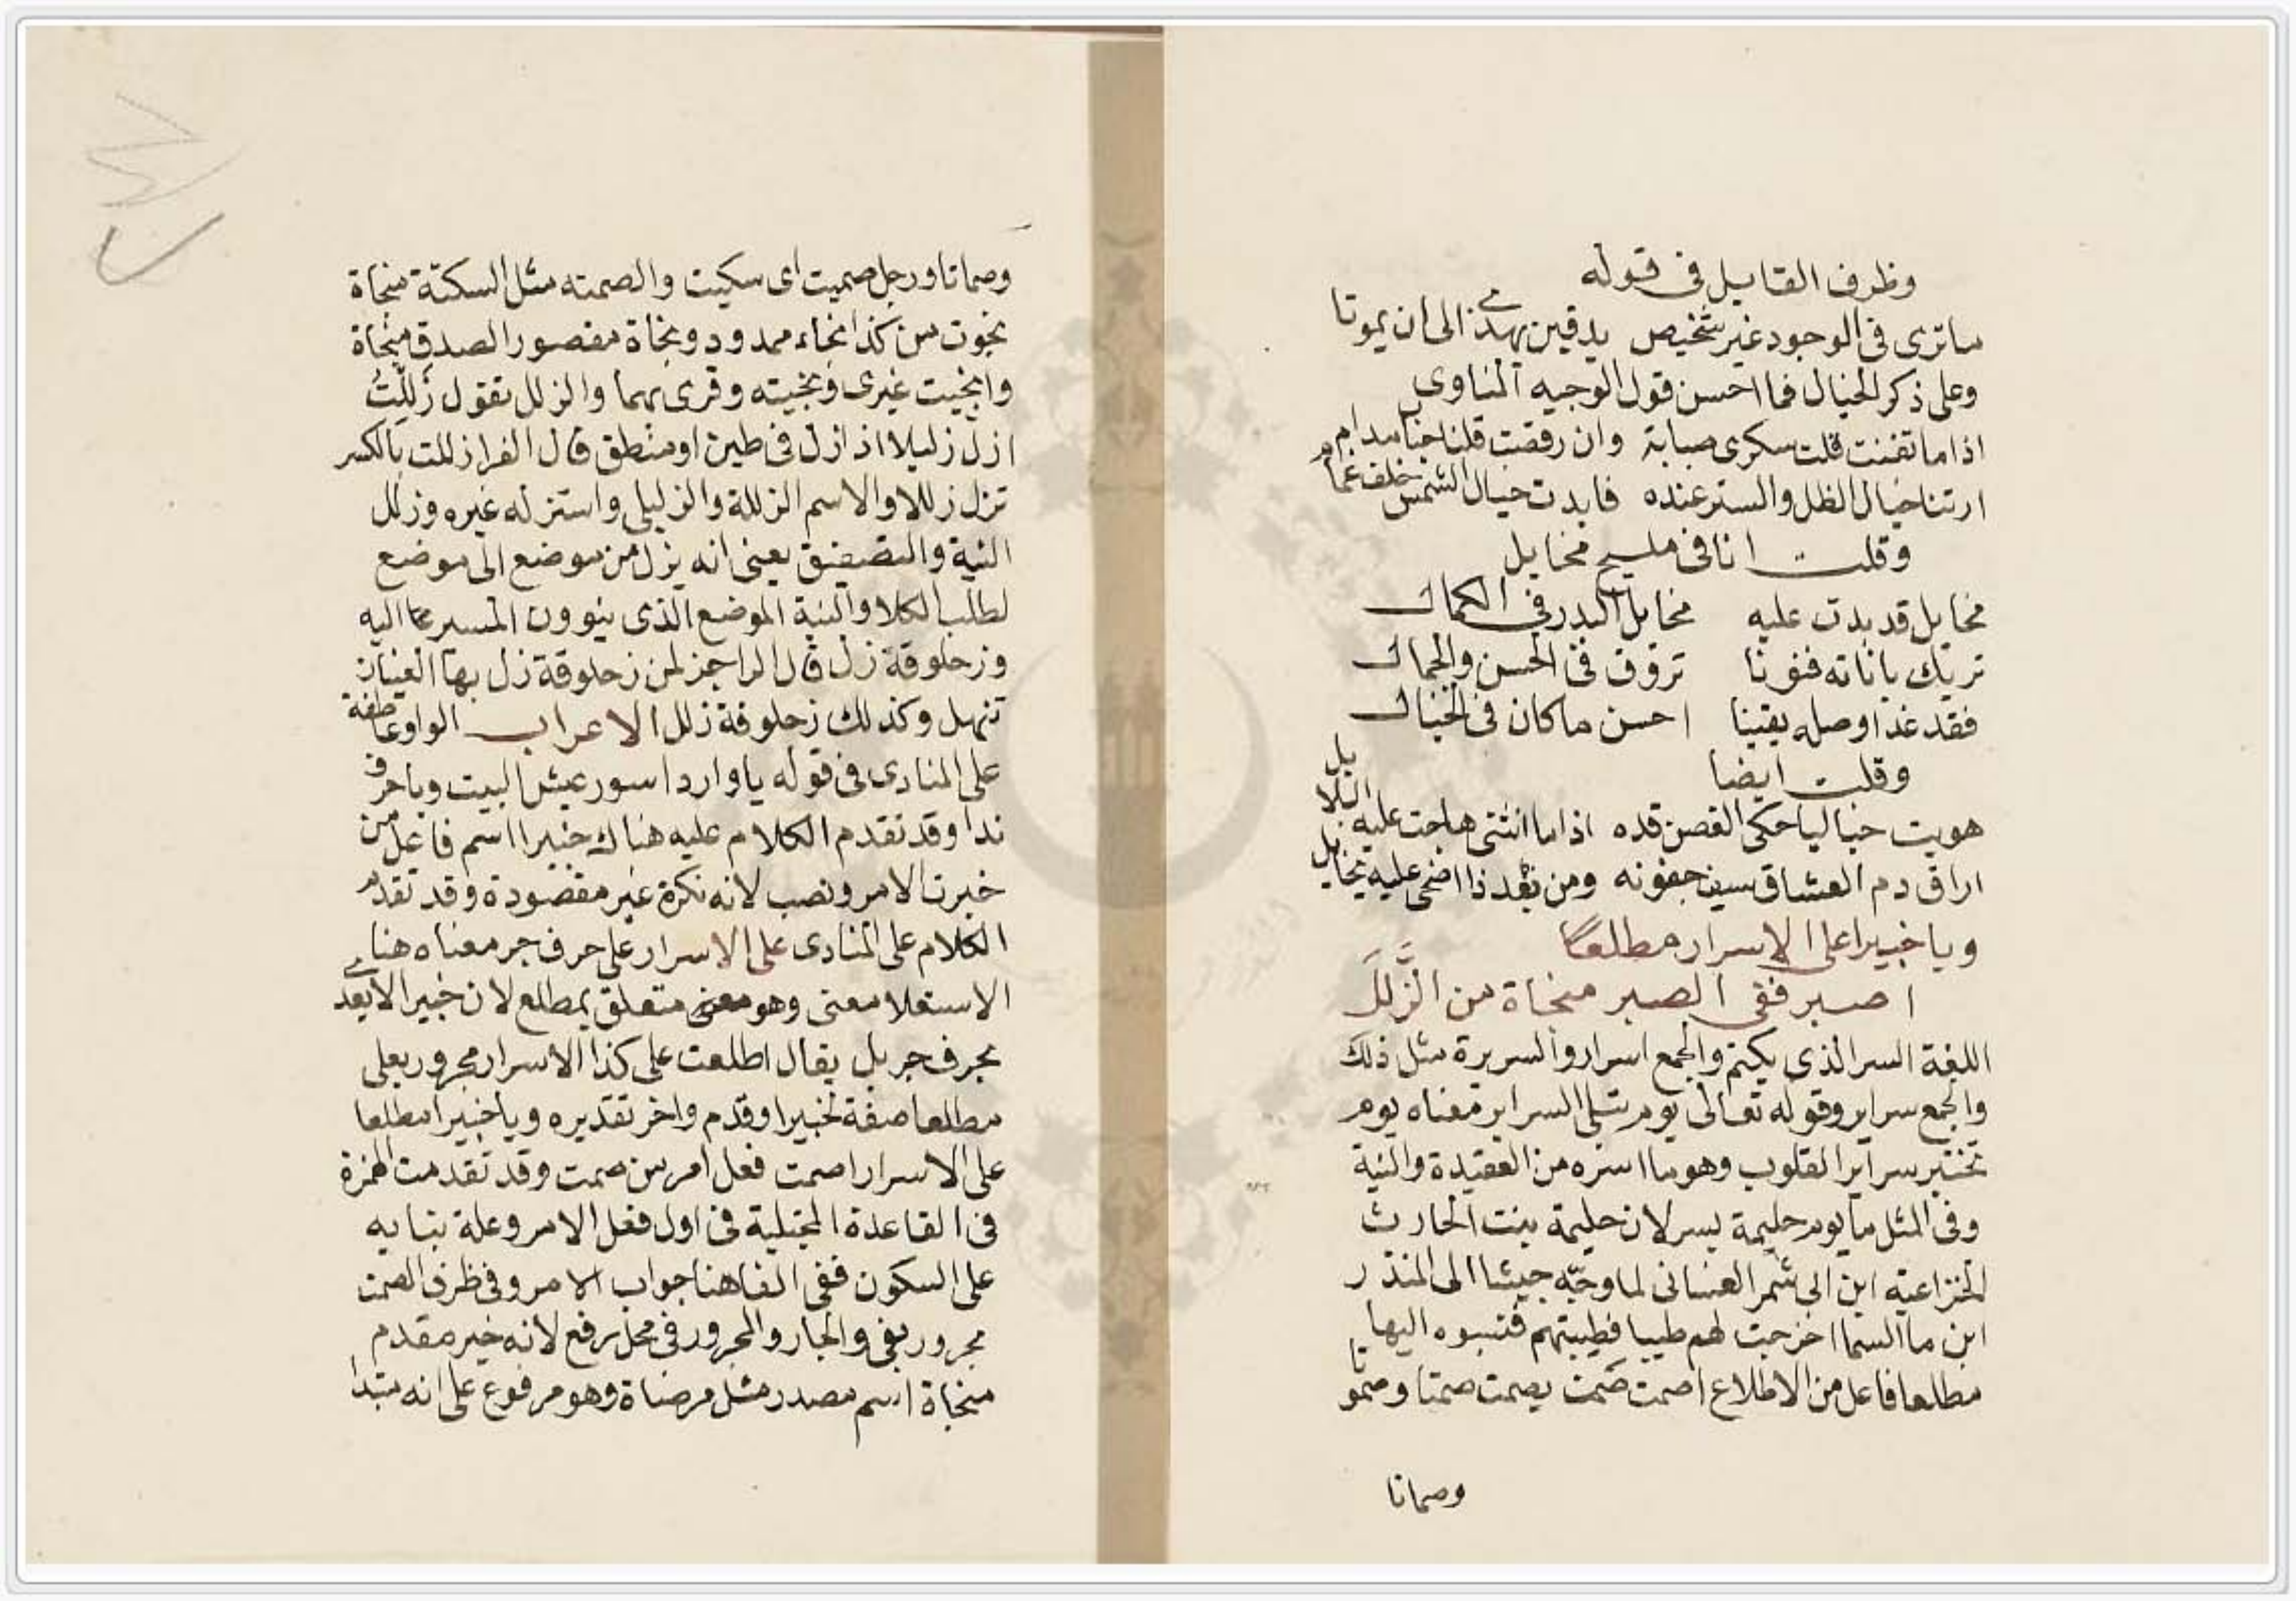 وظرف القايل في قوله
ما ترى في الوجود غير شخيص يدقين يهذي الى ان يموتا
وعلى ذكر الخيال فما احسن قول الوجيه المناوى
اذا ما تغنت قلت سكرى صبابة وان رقصت قلنا مدام
ارتنا خيال الظل والستر عنده فابدت خيال الشمس خلف غمام
وقلت انا في مليح مخايل
مخايل قد بدت عليه مخايل البدر في الكمال
تريك باناته فنونا تروق في الحسن والجمال
فقد غدا وصله يقينا احسن ما كان في الخيال
وقلت ايضا
هويت خياليا حكى الغصن قده اذا ما انثنى هاجت عليه البلابل
اراق دم العشاق سيف جفونه ومن بعد ذا اضحى عليه يخايل
ويا خبيرا على الاسرار مطلعا
اصبر ففى الصبر منجاة من الزَّلَلَ
اللغة السر الذى يكتم والجمع اسرار والسريرة مثل ذلك
والجمع سراير وقوله تعالى يوم تبلى السراير معناه يوم
تختبر سراير القلوب وهو ما اسره من العقيدة والنية
وفى المثل ما يوم حليمة بسر لان حليمة بنت الحارث
الخزاعية ابن ابى شمر الغسانى لما وجّه جيشا الى المنذر
ابن ما السما اخرجت لهم طيبا فطيبتهم فنسبوه اليها
مطلعا فاعل من الاطلاع اصمت صَمت يصمت صمتا وصموتا
وصماتا
وصماتا ورجل صميت اى سكيت والصمته مثل السكتة منجاة
نجوت من كذا نجاء ممدود ونجاة مقصور الصدق منجاة
وانجيت غيرى ونجيته وقرى بهما والزلل تقول زَلِلْتُ
ازل زليلا اذا زل في طين او منطق قال الفرا زللت بالكسر
تزل زللا والاسم الزللة والزليلى واستزله غيره وزلل
النية يعنى انه يزل من موضع الى موضع
لطلب الكلا والنية الموضع الذى ينوون المسير اليه
وزحلوقة زل قال الراجز لمن زحلوقة زل بها العينان
تنهل وكذلك زحلوقة زلل الاعراب الواو عاطفة
على المنادى في قوله يا واردا سور عيش البيت ويا حرف
ندا وقد تقدم الكلام عليه هناك خبيرا اسم فاعل من
خبرت الامر ونصب لانه نكرة غير مقصودة وقد تقدم
الكلام على المنادى على الاسرار على حرف جر معناه هنا
الاستعلا معنى وهو متعلق بمطلع لان خبيرا لا يعدى
بحرف جر بل يقال اطلعت على كذا الاسرار مجرور بعلى
مطلعا صفة لخبيرا وقدم واخر تقديره ويا خبيرا مطلعا
على الاسرار اصمت فعل امر من صمت وقد تقدمت الهمزة
فى القاعدة المجتلبة في اول فعل الامر وعلة بنايه
على السكون ففى الفا هنا جواب الامر وفى ظرف الصمت
مجرور بفى والجار والمجرور في محل رفع لانه خبر مقدم
منجاة اسم مصدر مثل مرضاة وهو مرفوع على انه مبتدا